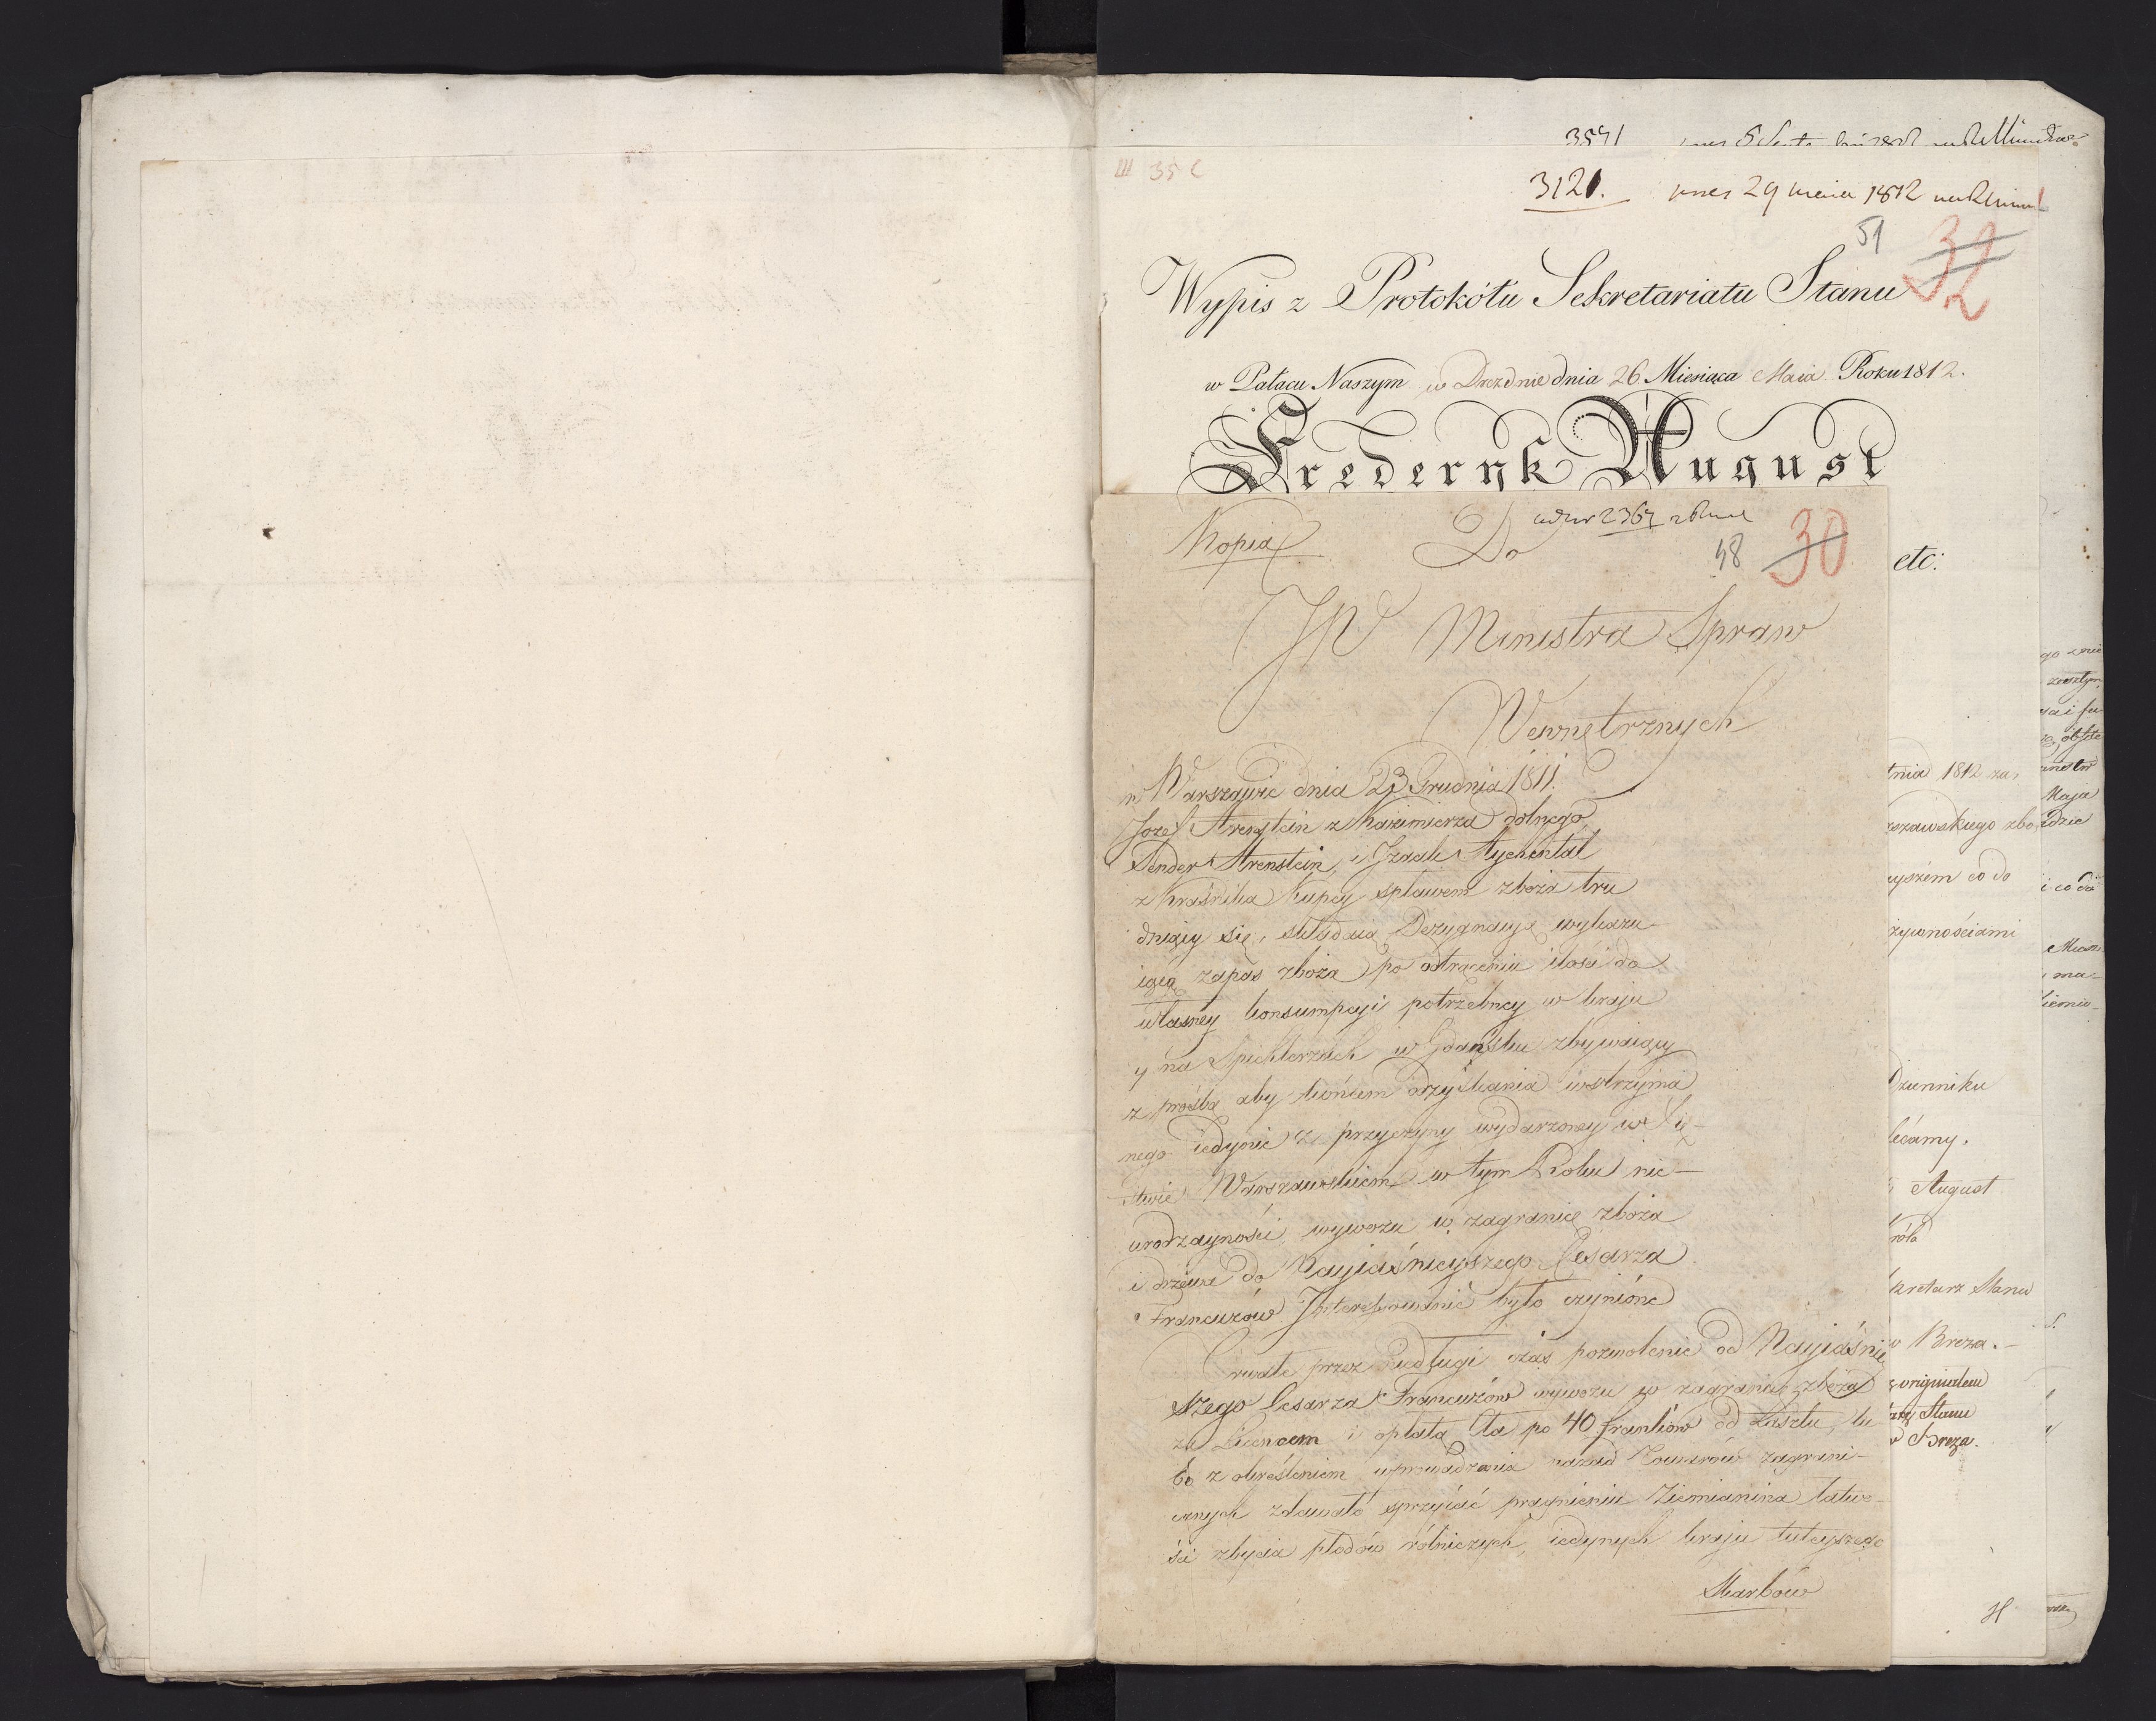 3541
III 35 c
3121. 29 1812
51 32
Wypis z Protokółu Sekretariatu Stanu
w Pałacu Naszym w Dreźdnie dnia 26 Miesiąca Maia Roku 1812.
Fryderyk August
etc:
ad nr 2367
Kopia Do 48 30
JW Ministra Spraw
Wewnętrznych
w Warszawie dnia 23 Grudnia 1811.
Jozef Arenstein z Kazimierza dolnego
Sender Arenstein, i Izaak
z Kraśnika Kupcy spławem zboża tru
dniący się, składaią Dezygnacyą wykazu
iącą zapas zboża po odtrąceniu ilości do
własney konsumpcyi potrzebney w kraju
y na Spichlerzach w Gdańsku zbywaiący
z prośbą aby końcem odzyskania wstrzyma
nego iedynie z przyczyny wydarzoney w Xię-
stwie Warszawskiem w tym Roku nie-
urodzayności, wywozu w zagranicę zboża
i drzewa do Nayiaśnieyszego Cesarza
Francuzów Interessowanie było czynione
Trwałe przez niedługi czas pozwolenie od Nayiaśniey
szego Cesarza Francuzów wywozu w zagranicę zboża
za Licencem i opłatą Cła po 40 franków od Łasztu, lu
bo z określeniem wprowadzania nazad Towarów zagrani-
cznych zdawało sprzyiać pragnieniu Ziemianina łatwo-
ści zbycia płodów rólniczych, iedynych kraju tuteyszego
Skarbów
tnia 1812 za
rszawskiego zbo
eyszém co do
żywnościami
Dzienniku
lecamy.
August
króla
kretarz Stanu
w Breza.
z originałem
arz Stanu
w Breza.
Maja
i co do